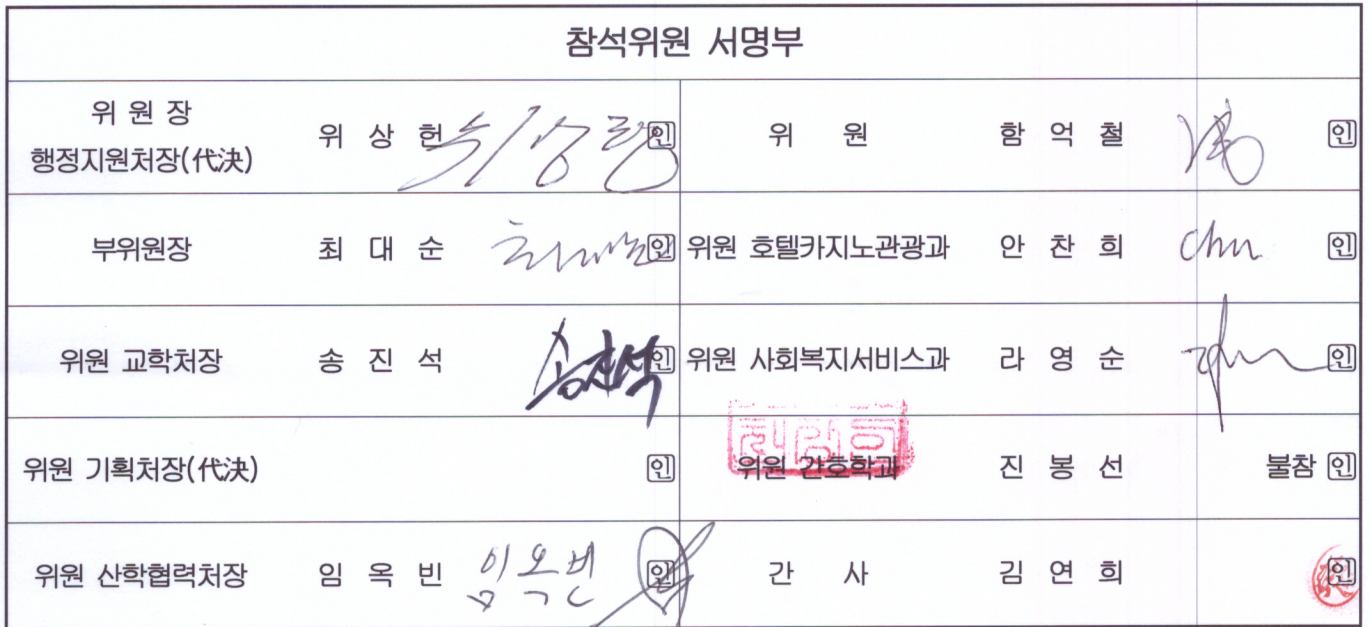 참석위원 서명부
위 원 장
행정지원처장(代決)
위 상 헌
인
위 원
함 억 철
인
부위원장
최 대 순
인
위원 호텔카지노관광과
안 찬 희
인
위원 교학처장
송 진 석
송진석
인
위원 사회복지서비스과
라 영 순
인
위원 기획처장(代決)
인
위원 간호학과
진 봉 선
불참 인
위원 산학협력처장
임 옥 빈
임옥빈
인
간 사
김 연 희
인